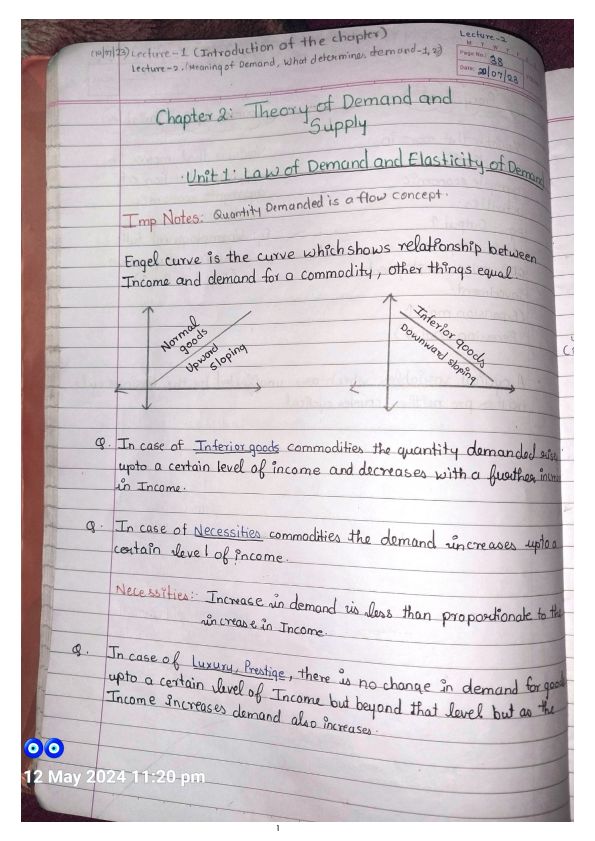 (19/07/23) Lecture-1 (Introduction of the chapter)
Lecture-2. (Meaning of Demand, What determines demand-1,2)
Lecture-2
M T W T
Page No.: 38
Date: 20/07/23
Chapter 2: Theory of Demand and
Supply
Unit 1: Law of Demand and Elasticity of Demand
Imp Notes: Quantity Demanded is a flow concept.
Engel curve is the curve which shows relationship between
Income and demand for a commodity, other things equal.
Normal
goods
Upward
sloping
Inferior goods
Downward sloping
Q. In case of Inferior goods commodities the quantity demanded rises
upto a certain level of income and decreases with a further
in Income.
Q. In case of Necessities commodities the demand increases upto a
certain level of income.
Necessities: Increase in demand is less than proportionate to the
increase in Income.
Q. In case of Luxury, Prestige, there is no change in demand for
upto a certain level of Income but beyond that level but as the
Income increases demand also increases.
12 May 2024 11:20 pm
1